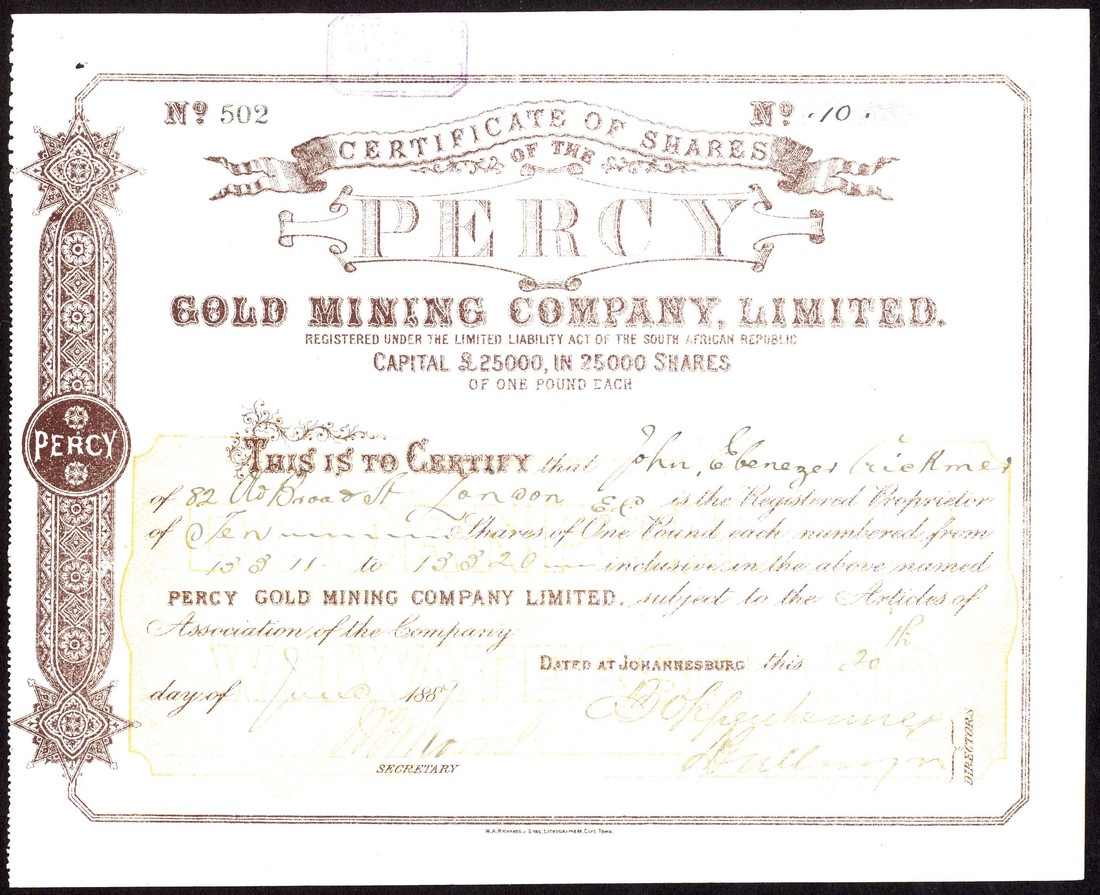 Nº 502 Nº 10.
CERTIFICATE OF SHARES
OF THE
PERCY
GOLD MINING COMPANY, LIMITED.
REGISTERED UNDER THE LIMITED LIABILITY ACT OF THE SOUTH AFRICAN REPUBLIC
CAPITAL £25000, IN 25000 SHARES
OF ONE POUND EACH
PERCY
THIS IS TO CERTIFY that John, Ebenezer Crickmer
of 82 Old Broad St London E.C. is the Registered Proprietor
of Ten Shares of One Pound each numbered from
13311 to 13320 inclusive in the above named
PERCY GOLD MINING COMPANY LIMITED, subject to the Articles of
Association of the Company
DATED AT JOHANNESBURG this 20th
day of June 1889
SECRETARY
DIRECTORS
W.A. RICHARDS & SONS, LITHOGRAPHERS, CAPE TOWN.